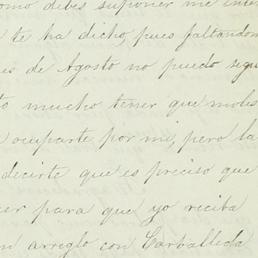 omo debes suponer me inter
te ha dicho, pues faltandom
es de Agosto no puedo segu
to mucho tener que moles
ocuparte por mi, pero la
decirte que es preciso que
cer para que yo reciba
un arreglo con Carballeda